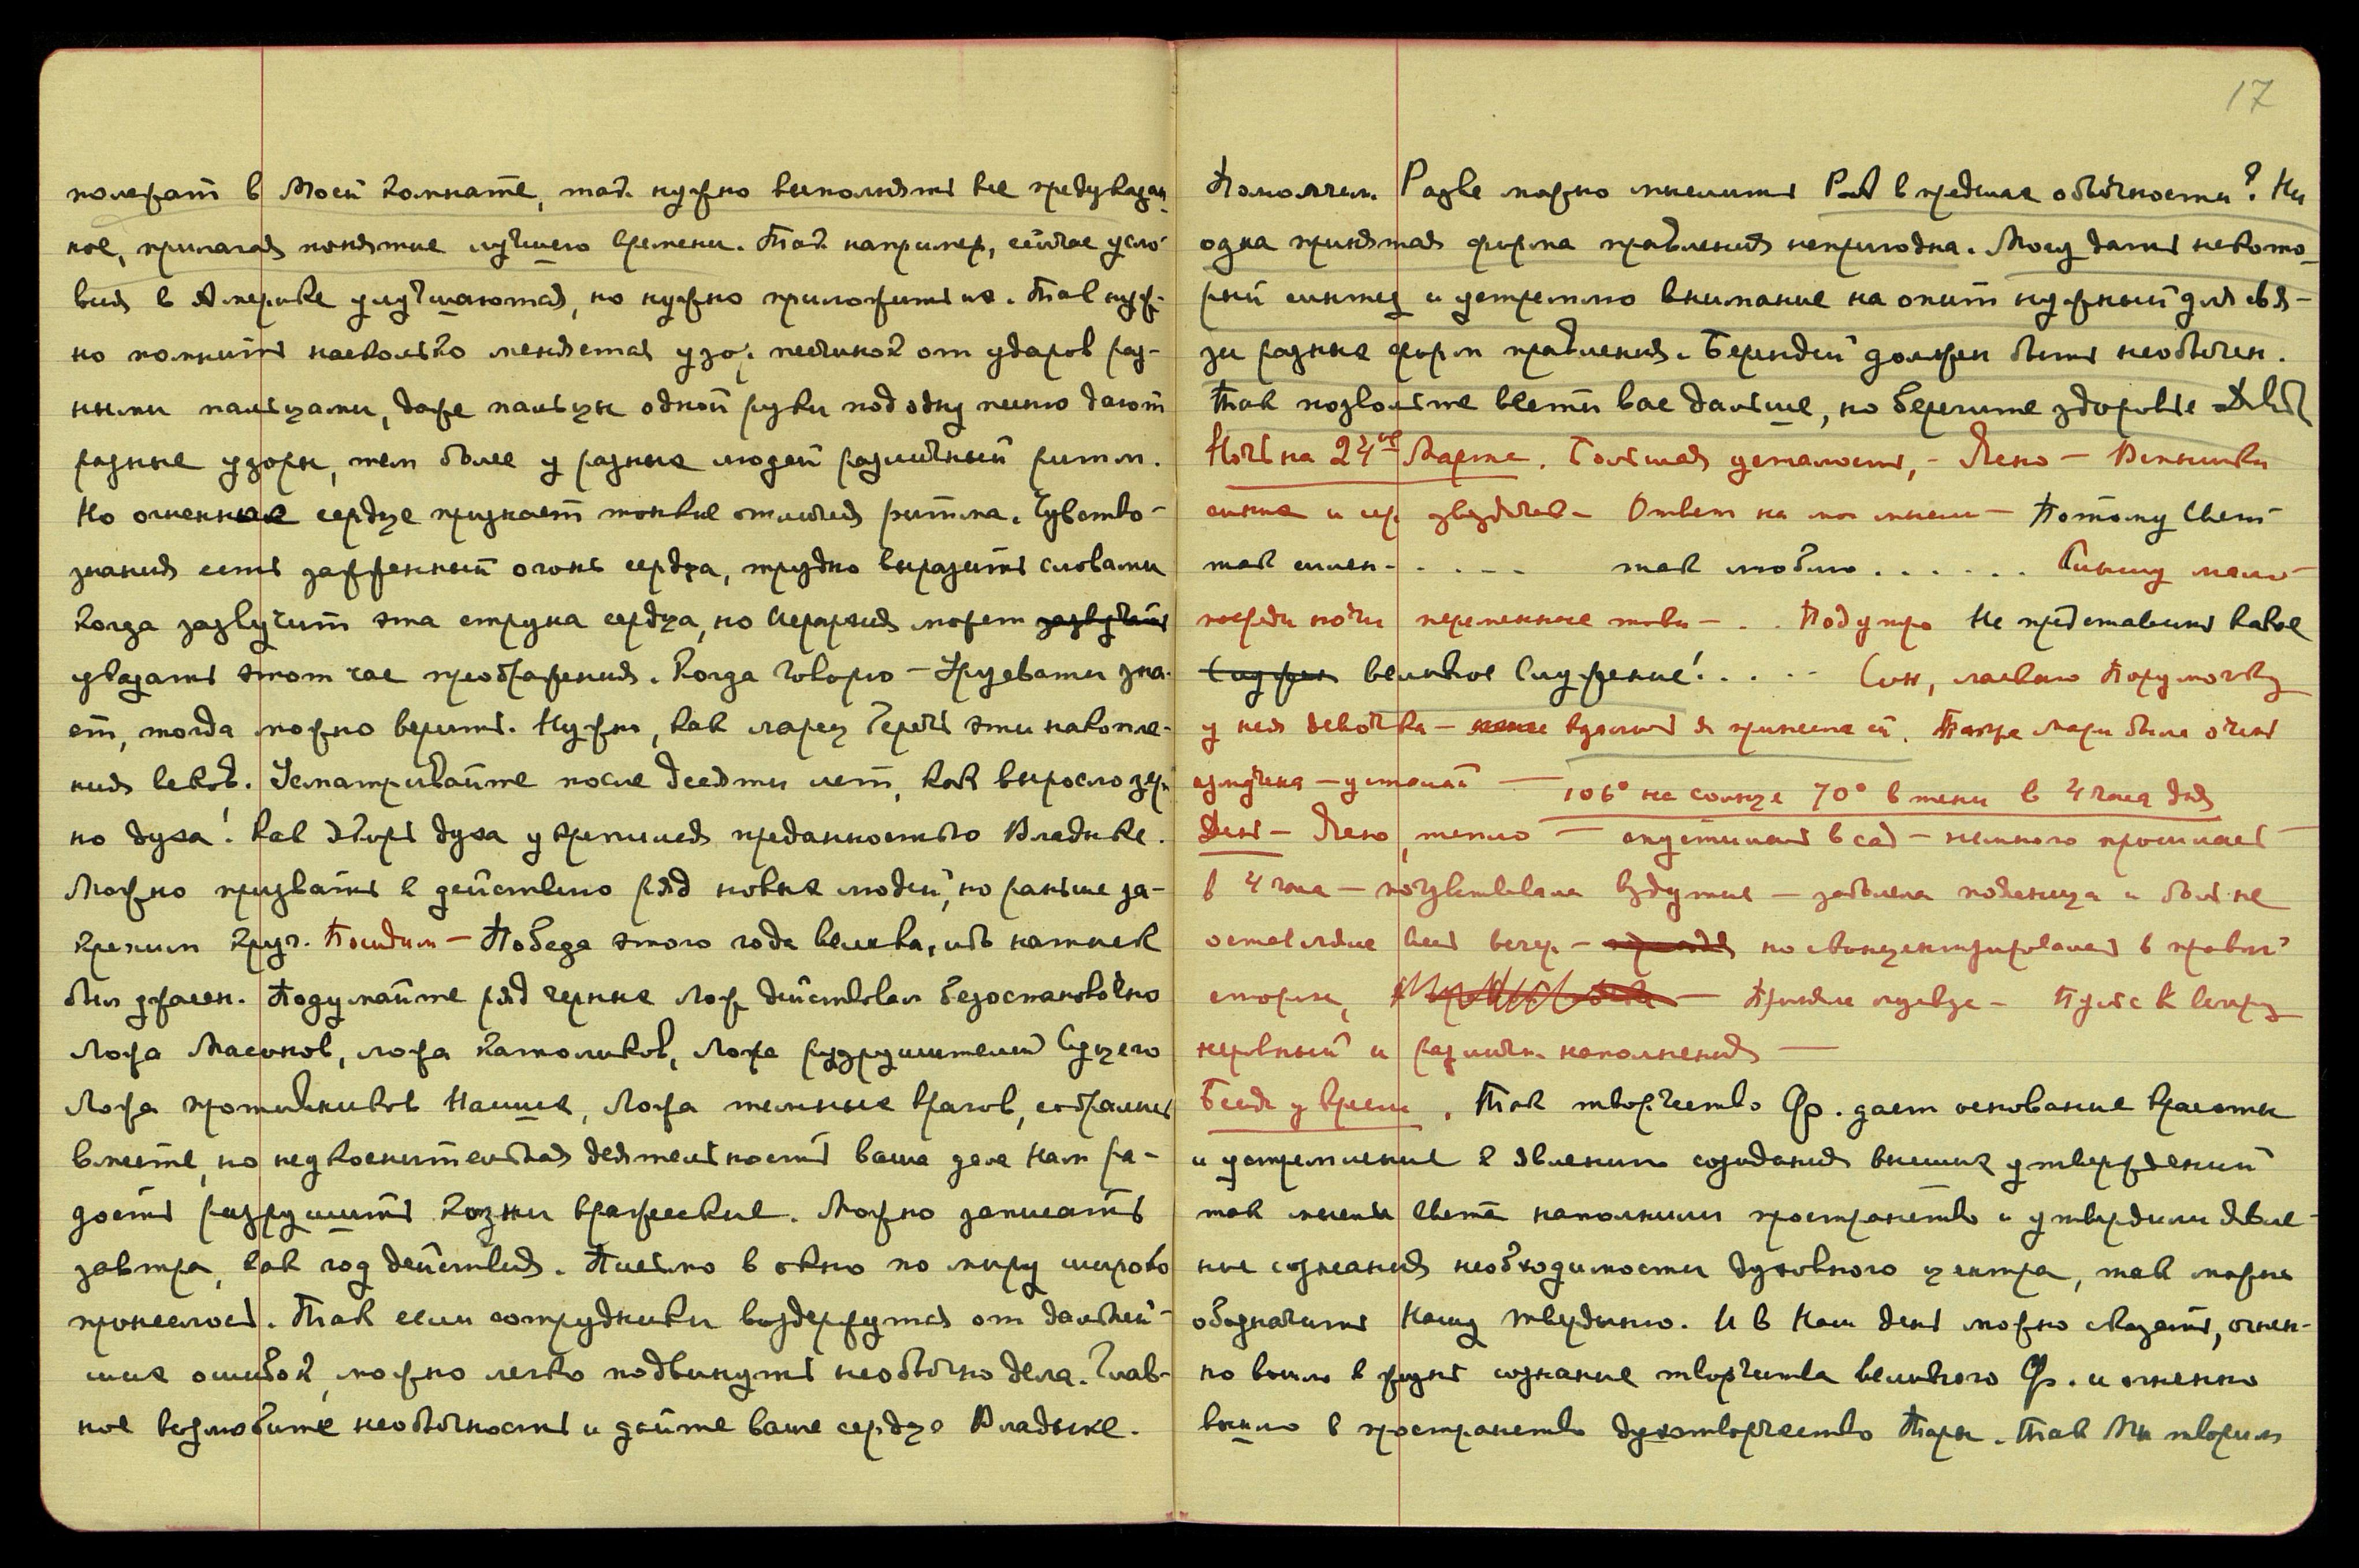 полежат в Моей комнате, так нужно выполнять все предуказан-
ное, прилагая понятие лучшего времени. Так например, сейчас усло-
вия в Америке улучшаются, но нужно приложить их. Так нуж-
но помнить насколько меняется узор песчинок от ударов раз-
ными пальцами, даже пальцы одной руки под одну песню дают
разные узоры, тем более у разных людей различный ритм.
Но огненное сердце признает тонкие отличия ритма. Чувство-
знания есть зажженный огонь сердца, трудно выразить словами
когда зазвучит эта струна сердца, но Иерархия может зазвучать
указать этот час преображения. Когда говорю — Урусвати зна-
ет, тогда можно верить. Нужно, как ларец беречь эти накопле-
ния веков. Усматривайте после десяти лет, как выросло зер-
но духа! Как якорь духа укрепился преданностью Владыке.
Можно призвать к действию ряд новых людей, но раньше за-
крепим круг. Посидим — Победа этого года велика, ибо натиск
был ужасен. Подумайте ряд черных Лож действовал безостановочно
Ложа Масонов, ложа католиков, Ложа разрушителей Сущего
Ложа противников Наших, Ложа темных врагов, собрались
вместе, но неукоснительная деятельность ваша дала Нам ра-
дость разрушить козни вражеские. Можно записать
завтра, как год действия. Письмо в окно по миру широко
пронеслось. Так если сотрудники воздержутся от дальней-
ших ошибок, можно легко подвинуть необычно дела. Глав-
ное возлюбите необычность и дайте ваше сердце Владыке.
17
Помолчим. Разве можно мыслить в пределах обычности? Ни
одна принятая форма правления непригодна. Могу дать некото-
рый синтез и устремлю внимание на опыт нужный для свя-
зи разных форм правления. Берендей должен быть необычен.
Так позвольте вести вас дальше, но берегите здоровье
Ночь на 24ое Марта. Большая усталость, — Ясно — Вспышки
синие и звездочек — Ответ на мои мысли — Потому Свет
так силен - . . . так люблю . . . . . . Слышу мало —
посреди ночи переменные токи — . . Под утро Не представить какое
Служен великое Служение! . . . . Сон, ласкаю
у нея девочка — я принесла ей. была очень
измучена — усталой — 106° на солнце 70° в тени в 4 часа дня
День — Ясно, тепло — спустилась в сад — немного прошлась —
в 4 часа — почувствовала вздутие — заболела поясница и боль не
оставляла весь вечер — но сконцентрировалась в правой
стороне, — Приняла — Пульс к вечеру
нервный и различн. наполнения —
Беседа у време. Так творчество Ф. дает основание красоты
и устремление к явлению созидания высших утверждений
так мысли света наполнили пространство и утвердили явле-
ние сознания необходимости духовного центра, так можно
обозначить Нашу твердыню. И в Наш день можно сказать, огнен-
но вошло в жизнь сознание творчества великого Ф. и огненно
вошло в пространство духотворчество Тары. Так Мы творим